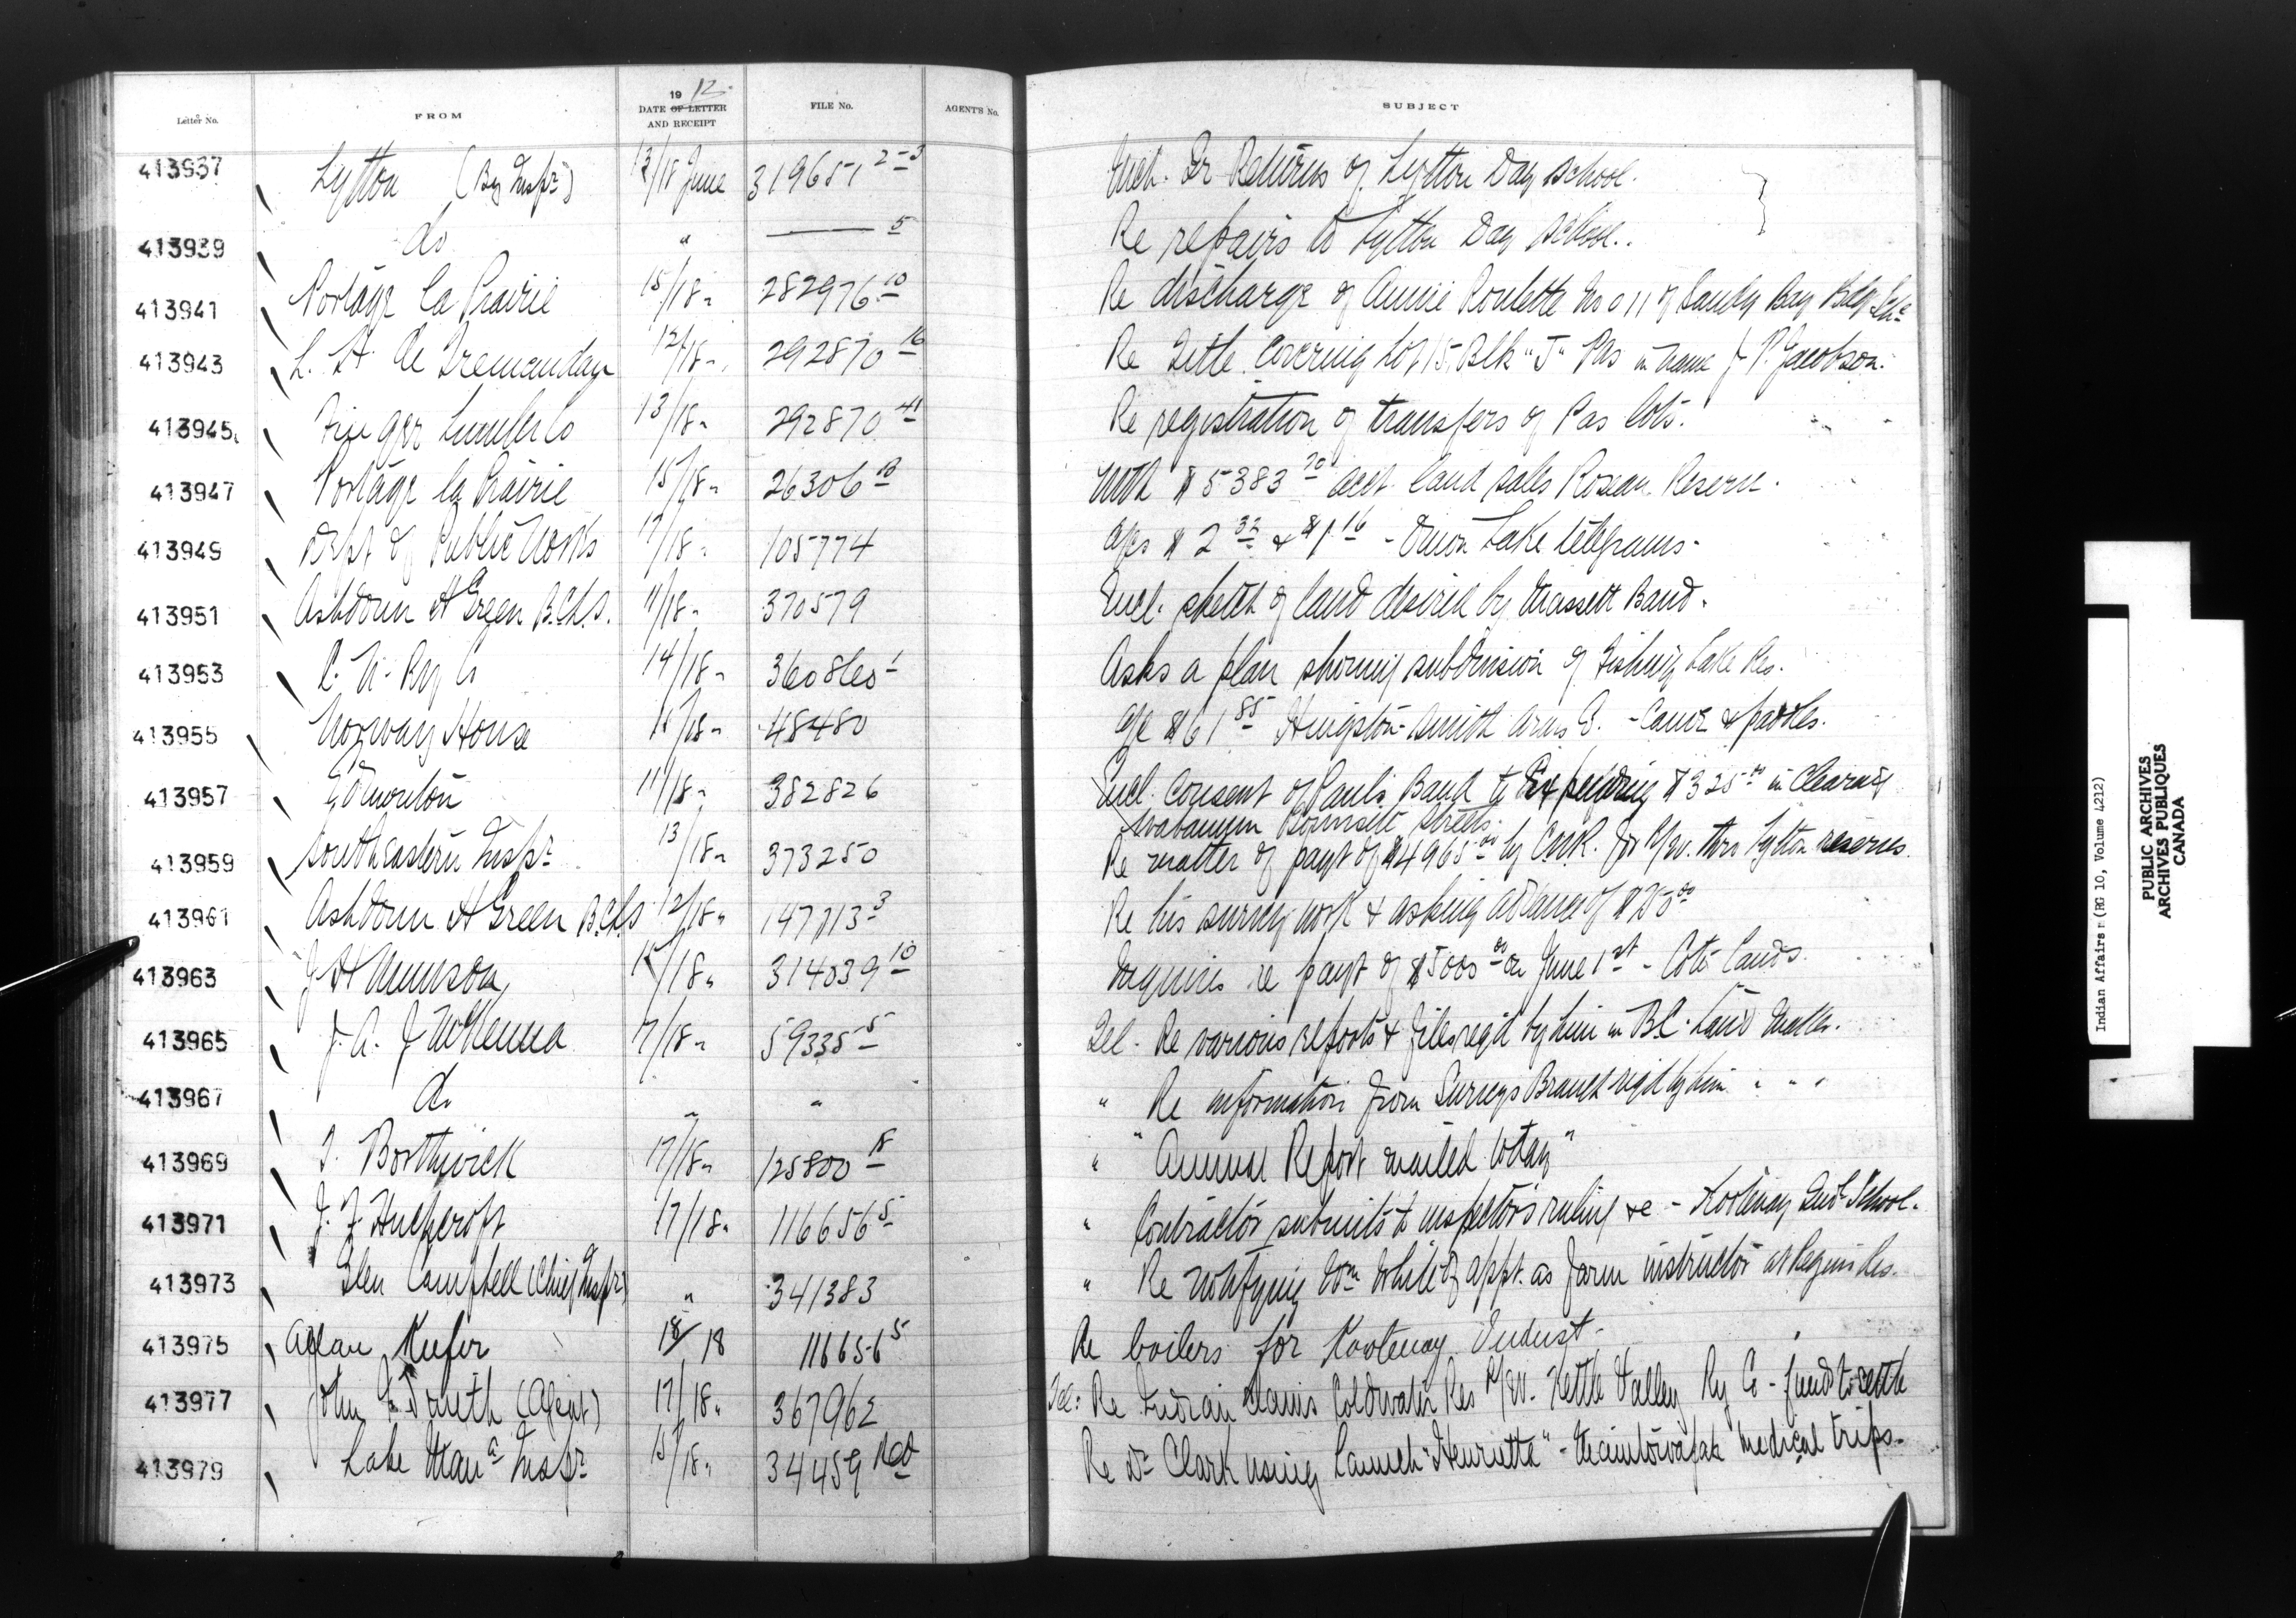 Letter No. FROM 19 12. DATE OF LETTER AND RECEIPT FILE No. AGENT'S No. SUBJECT
413937 Lytton (By Inspr) 13/18 June 319651 2-3 Encl. Qr Returns of Lytton Day School.
413939 do " —— 5 Re repairs to Lytton Day School..
413941 Portage la Prairie 15/18 " 282976 10 Re discharge of Annie Roulette No 011 of Sandy Bay Bdg Sch
413943 12/18 " 292870 16 Re Title covering Lot 15, Blk "J" Pas in name J. P. Jacobson.
413945 Finger Lumber Co 13/18 " 292870 41 Re registration of transfers of Pas lots.
413947 Portage la Prairie 15/18 " 26306 With $5383 70 acct. land sales Roseau Reserve.
413949 Dept of Public Works 17/18 " 105774 a/cs $2 32 & $1 16 - Onion Lake telegrams -
413951 Ashdown H Green B.C.L.S. 11/18 " 370579 Encl. sketch of land desired by Massett Band.
413953 C. N. Ry Co 14/18 " 360860 1 Asks a plan showing subdivision of Fishing Lake Res.
413955 Norway House 11/18 " 48480 a/c $61 85 Hingston Smith Arms Co. - Canoe & paddles.
413957 Edmonton 11/18 " 382826 Encl. consent of Paul's Band to Expending $325 00 in clearing
Wabamun Townsite streets.
413959 South Eastern Inspr 13/18 " 373250 Re matter of payt of $4965 00 by C.N.R. for R/W. thro Lytton reserves.
413961 Ashdown H Green B.C.L.S 12/18 " 147713 3 Re his survey work & asking advance of $750 00
413963 J H Munson 15/18 " 314039 10 Inquires re payt of $5000 00 on June 1st - Cote lands.
413965 J. A. J McKenna 17/18 " 59335 5 Tel. Re various reports & files reqd by him in B.C. Land Matter.
413967 do " " " Re information from Surveys Branch reqd by him " " "
413969 T. Borthwick 17/18 " 125800 18 " "Annual Report mailed today"
413971 17/18 " 116656 5 " Contractor submits to inspectors ruling &c - Kootenay Indl School.
413973 Glen Campbell (Chief Inspr) " 341383 " Re notifying Wm White of appt. as farm instructor at Res.
413975 Allan Keefer 18/18 116656 5 Re boilers for Kootenay Indust -
413977 John F Smith (Agent) 17/18 " 367962 Tel: Re Indian claims Coldwater Res R/W. Kettle Valley Ry Co - funds to settle
413979 Lake Mana Inspr 15/18 " 34459 Red Re Dr Clark using Launch "Henrietta" - Manitowapah medical trips -
Indian Affairs (RG 10, Volume 4212)
PUBLIC ARCHIVES
ARCHIVES PUBLIQUES
CANADA